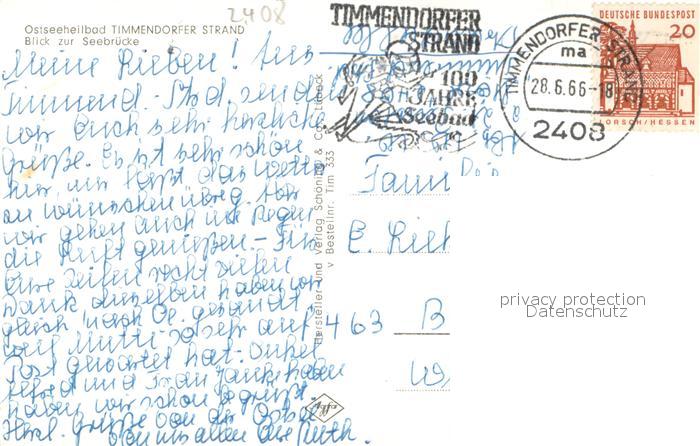 2408
Ostseeheilbad TIMMENDORFER STRAND
Blick zur Seebrücke
TIMMENDORFER
STRAND
100
JAHRE
Seebad
TIMMENDORFER STRAND
ma
28.6.66-18
2408
DEUTSCHE BUNDESPOST
20
LORSCH/HESSEN
Meine Lieben! Aus
Timmend. Strd. senden
wir Euch sehr herzliche
Grüße. Es ist sehr schön
hier, nur läßt das Wetter
zu wünschen übrig.
wir gehen auch im Regen
die Luft genießen - Für
Eure Zeilen recht vielen
Dank dieselben haben wir
gleich nach Oe. gesandt
weil Mutti so sehr auf
Post gewartet hat. Onkel
und Frau
haben wir schon begrüßt.
Herzl. Grüße von der Ostsee
von uns allen Ruth.
Hersteller und Verlag Schöning & Co., Lübeck
Bestellnr. Tim 333
Agfa
Fami
E. Lieb
463 B
privacy protection
Datenschutz